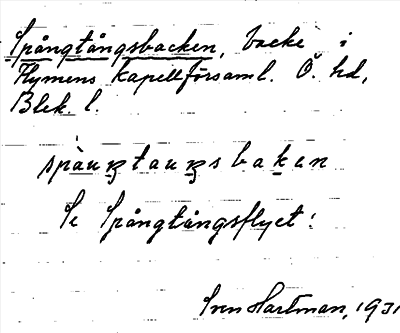 Spångtångsbacken, backe i
Flymens kapellförsaml. Ö. hd,
Blek. l.
spàuꞑtauꞑsbaken
Se Spångtångsflyet!
Sven Hartman, 1931